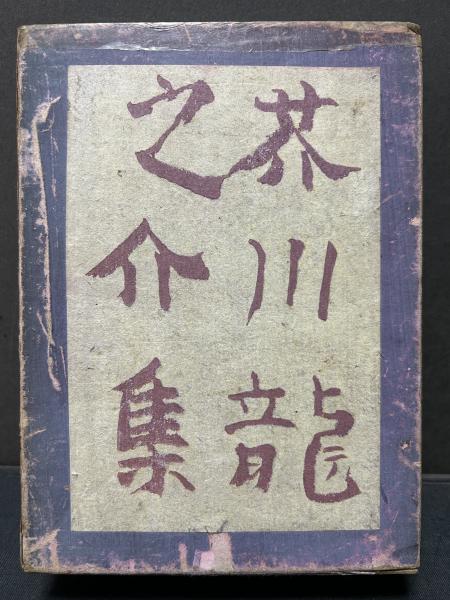 芥川龍
之介集